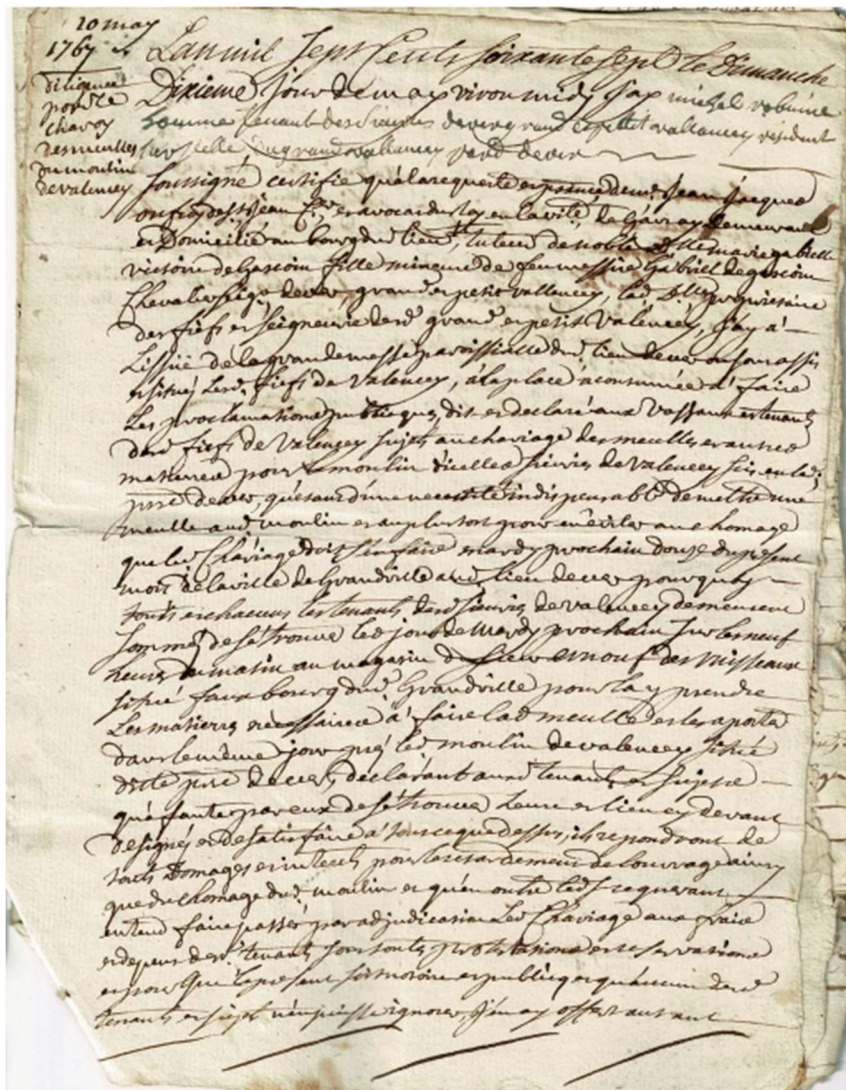 10 may
1767
diligence
pour le
charoy
des meulles
du moulin
de valencey
Lan mil Sept Cents soixante sept le Dimanche
Dixieme jour de may viron midy J'ay michel
homme tenant des sieuries de ver grand et petit vallencey resident
sur celle du grand vallencey parr de ver
Soussigné certifie qu'a la requeste et presence de mr Jean Jacques
sr et avocat du Roy en la vté de Gavray demeurant
et Domicilié au bourg dud lieu, tuteur de noble Dlle marie gabrielle
victoire de Gascoin fille mineure de feu messire Gabriel de gascoin
Chevalier seigr de ver, grand et petit vallencey, lad Dlle proprietaire
des fiefs et seigneurie desd grand et petit Valencey, J'ay a
L'issuë de la grande messe paroissialle dud lieu de ver ou sont assis
et situés lesd fiefs de Valencey, a la place acoutumée a faire
Les proclamations publiques, dit et declaré aux Vassaux et tenants
desd fiefs de Valencey sujets au chariage des meulles et autres
matieres pour le moulin d'icelles sieuries de Valencey sis en lad
prse de ver, quetant d'une necessité indispensable de mettre une
meulle aud moulin et au plus tost pour eviter au chomage
que led Chariage doit s'en faire mardy prochain douze du present
mois de la ville de Grandville aud lieu de ver pourquoy
touts et chacuns les tenants desd sieuries de valencey demeurent
sommés de se trouver led jour de Mardy prochain sur les neuf
heures du matin au magasin du sieur ernouf des Ruisseaux
situé faux bourg dud Grandville pour la y prendre
Les matieres necessaires a faire lad meulle et les aporter
dans le même jour pres led moulin de valencey situé
ditte prse de ver, declarant auxd tenants et sujets
qu'a faute par eux de se trouver heure et lieu cy devant
designés et de satisfaire a tout ce que dessus, ils repondront de
touts Domages et interets pour le retardement de l'ouvrage ainsy
que du chomage dud moulin et qu'en outre led sr requerant
entend faire passer par adjudication led Chariage aux frais
et depens desd tenants sous toutes protestations et reservations
et pour que le present soit notoire et public et qu'aucun desd
tenants et sujets n'en puisse ignorer, J'en ay offert autant